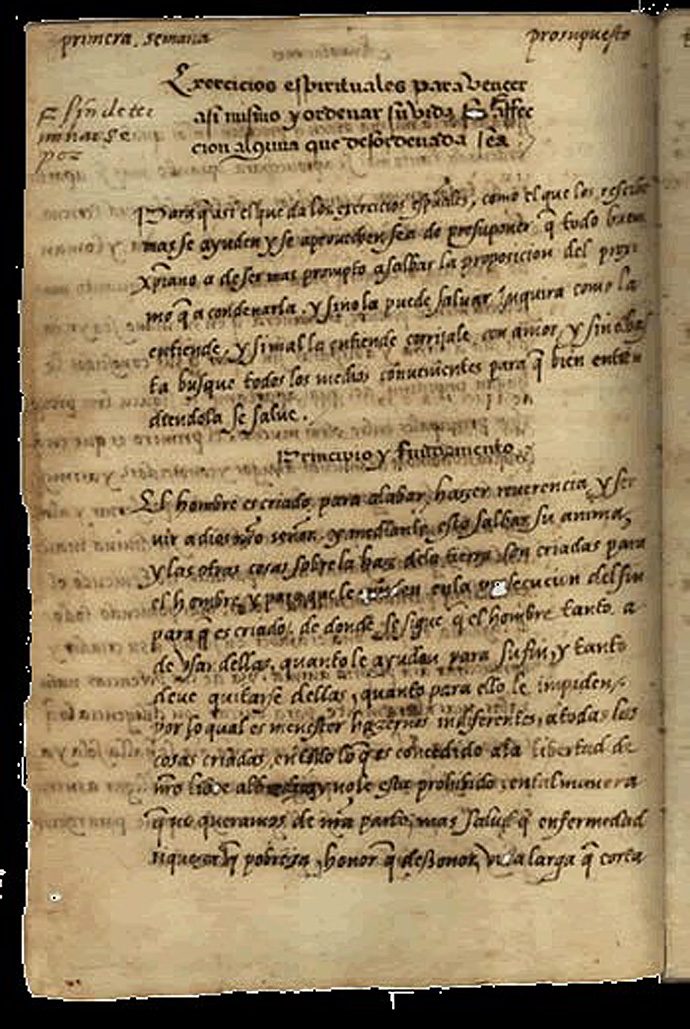 primera. semana
prosupuesto
Exercicios espirituales para vençer
a si mismo y ordenar su vida, sin affec
cion alguna que desordenada sea.
sin deter
minarse
por
Para q̃ asi el que da los exercicios espũales, como el que los rescibe
mas se ayuden y se aprouechen sea de presuponer q̃ todo buen
xp̃iano a de ser mas prompto a salbar la proposicion del proxi
mo q̃ a condenarla. y si no la puede saluar Inquira como la
entiende, y si mal la entiende corrijale, con amor, y si no bas
ta busque todos los medios conuenientes para q̃ bien enten
diendola se salue.
Principio y fundamento
El hombre es criado para alabar, hazer reuerencia, y ser
uir a dios nr̃o señor. y mediante esto salbar su anima,
y las otras cosas sobre la haz dela tierra son criadas para
el hombre, y para que le en la prosecucion del fin
para q̃ es criado. de donde se sigue q̃ el hombre tanto a
de vsar dellas, quanto le ayudan para su fin, y tanto
deue quitarse dellas, quanto para ello le impiden,
por lo qual es menester hazernos indiferentes, a todas las
cosas criadas, en todo lo q̃ es concedido a la libertad de
nr̃o libre albedrio y no le esta prohibido. en tal manera
q̃ no queramos de nr̃a parte, mas salud q̃ enfermedad
riqueza q̃ pobreza, honor q̃ desonor, vida larga q̃ corta